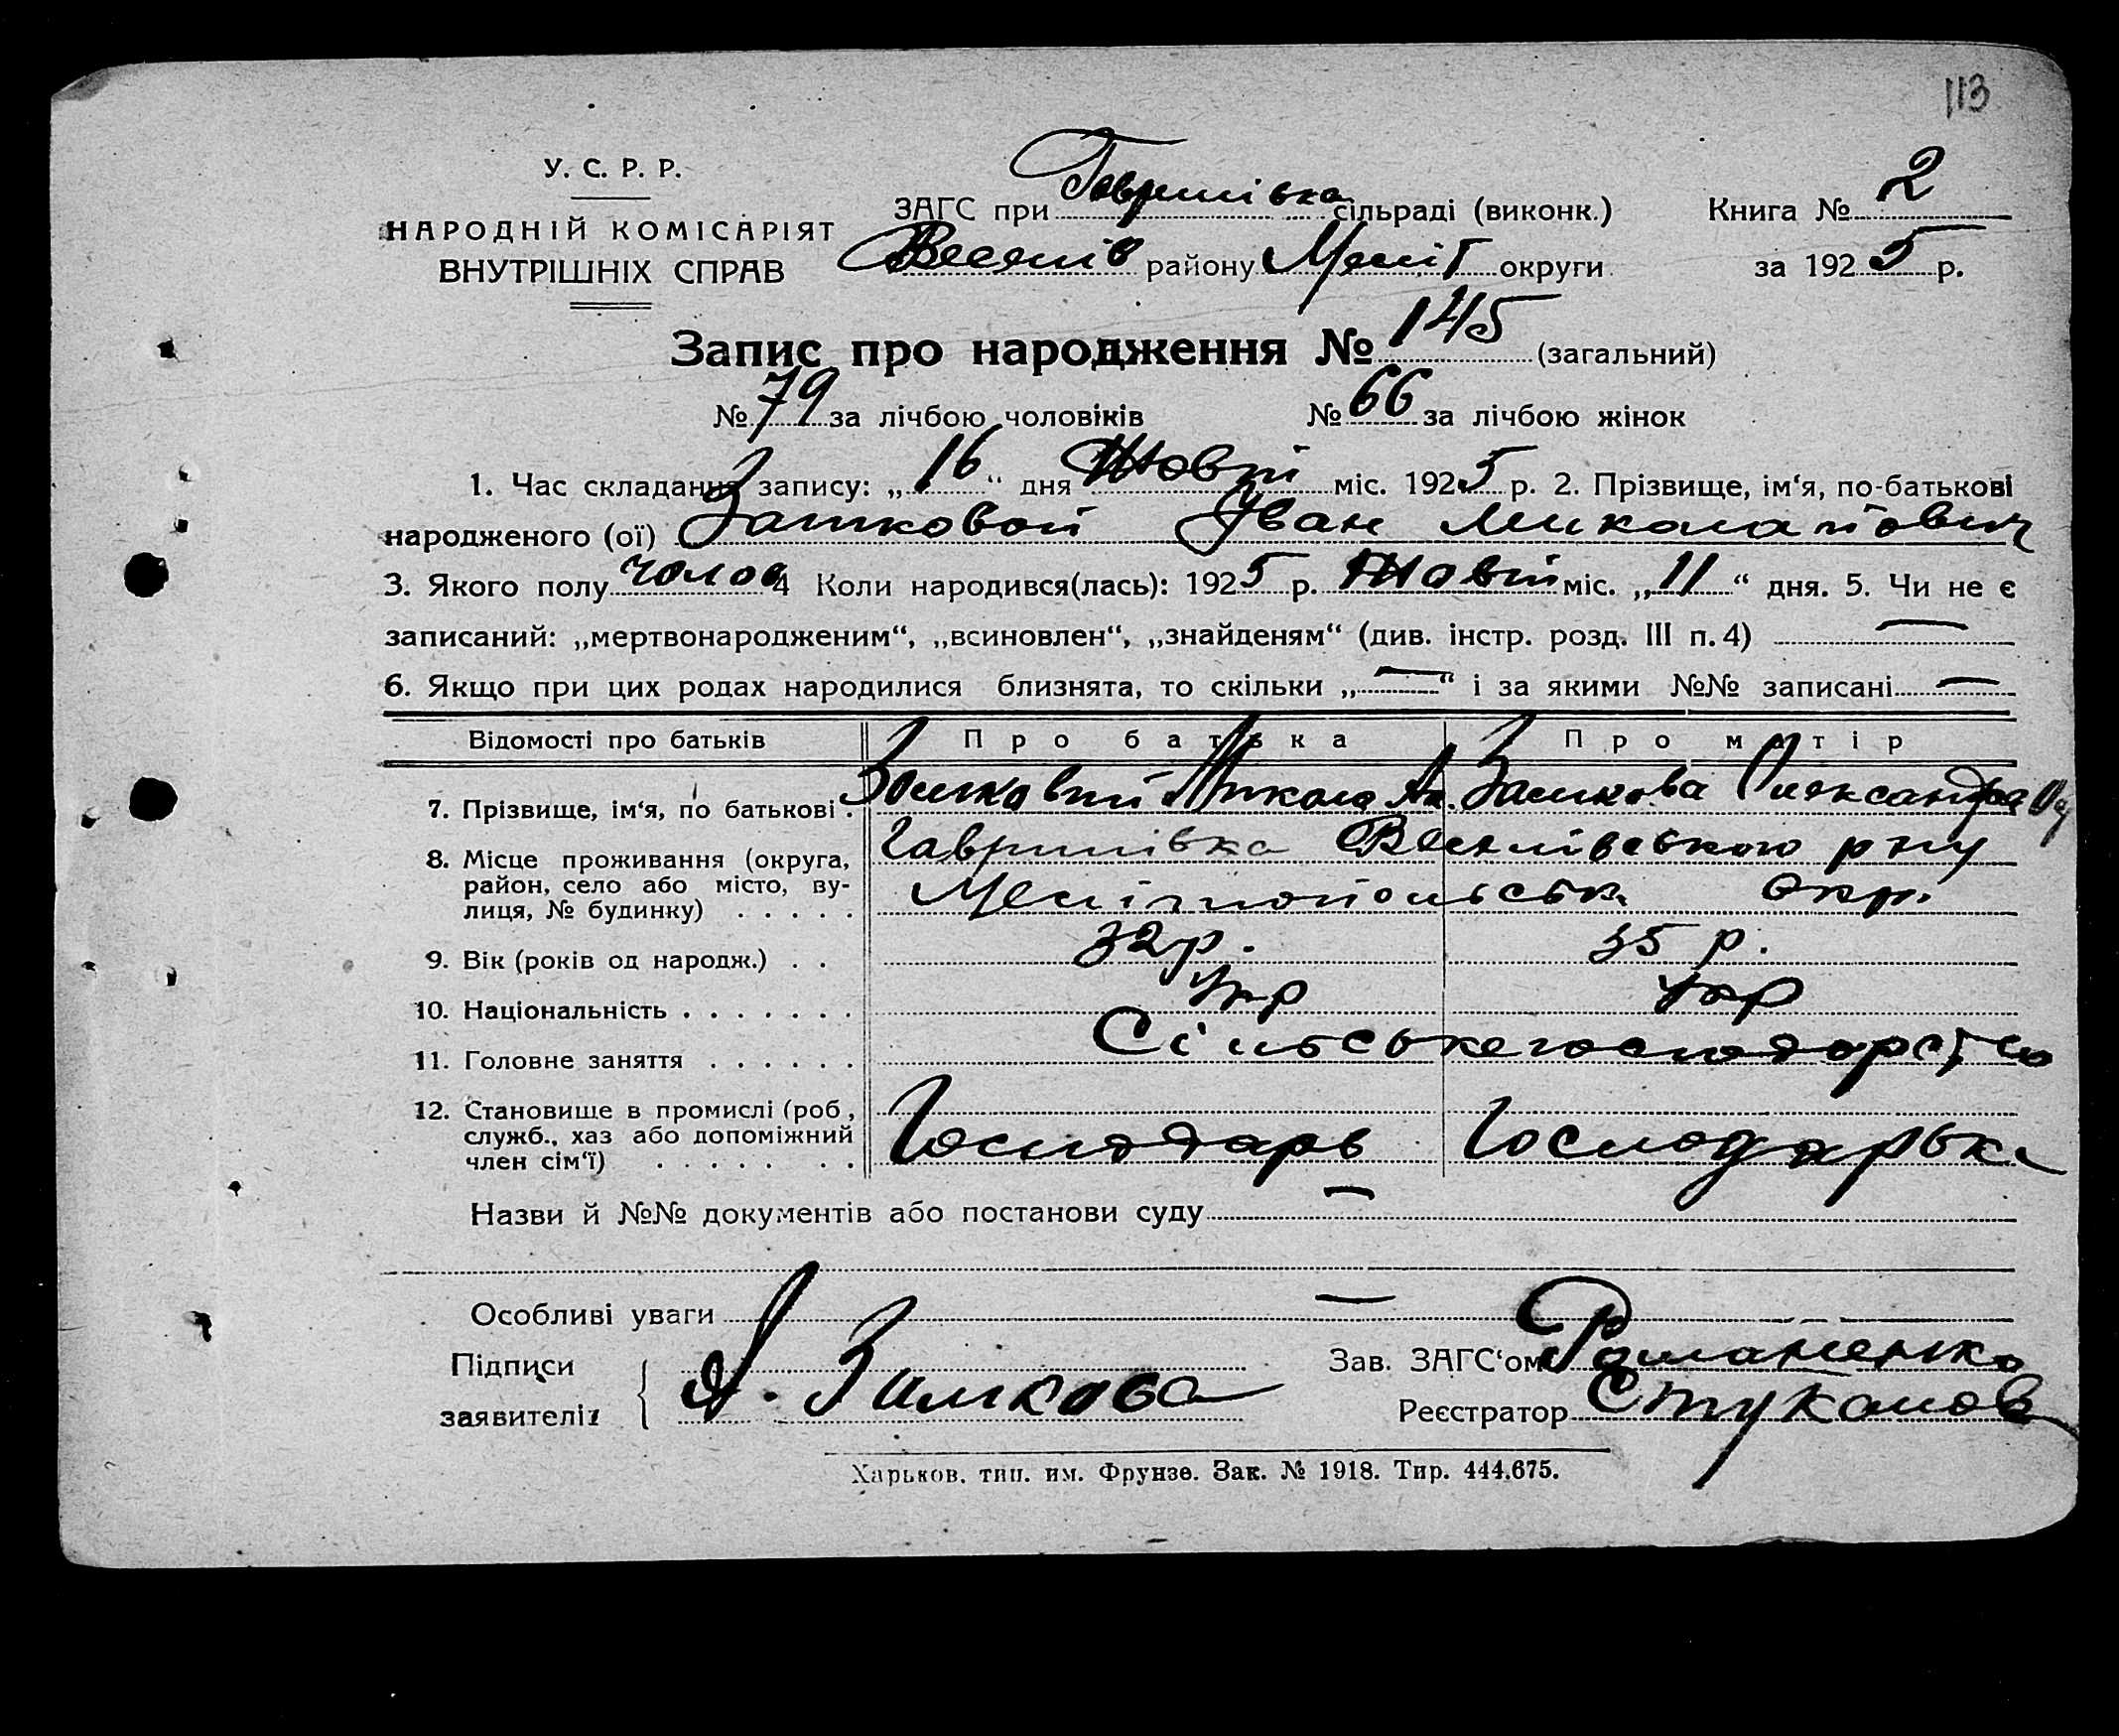 113
У. С. Р. Р.
НАРОДНІЙ КОМІСАРІЯТ
ВНУТРІШНІХ СПРАВ
ЗАГС при Гаврилівка сільраді (виконк.) Книга № 2
Веселів району Меліт округи за 1925 р.
Запис про народження № 145 (загальний)
№ 79 за лічбою чоловіків № 66 за лічбою жінок
1. Час складання запису: „16“ дня Жовт міс. 1925 р. 2. Прізвище, ім‘я, по-батькові
народженого (ої) Іван Миколайович
3. Якого полу чолов 4 Коли народився(лась): 1925 р. Жовт міс. „11“ дня. 5. Чи не є
записаний: „мертвонародженим“, „всиновлен“, „знайденям“ (див. інстр. розд. III п. 4) —
6. Якщо при цих родах народилися близнята, то скільки „—“ і за якими №№ записані —
Відомості про батьків Про батька Про матір
7. Прізвище, ім‘я, по батькові . Микола Замкова Олександра
8. Місце проживання (округа, район, село або місто, вулиця, № будинку) . . . . . Гаврилівка Веселівського р-ну
Мелітопольськ. Окр.
9. Вік (років од народж.) . . 32 р. 35 р.
10. Національність . . . . . . . Укр Укр
11. Головне заняття . . . . . . Сільське господарство
12. Становище в промислі (роб , служб., хаз або допоміжний член сім‘ї) . . . . . . . Господарь Господарька
Назви й №№ документів або постанови суду —
Особливі уваги —
Підписи
заявителів А. Замкова
Зав. ЗАГС‘ом Романенко
Реєстратор Стукалов
Харьков. тип. им. Фрунзе. Зак. № 1918. Тир. 444.675.